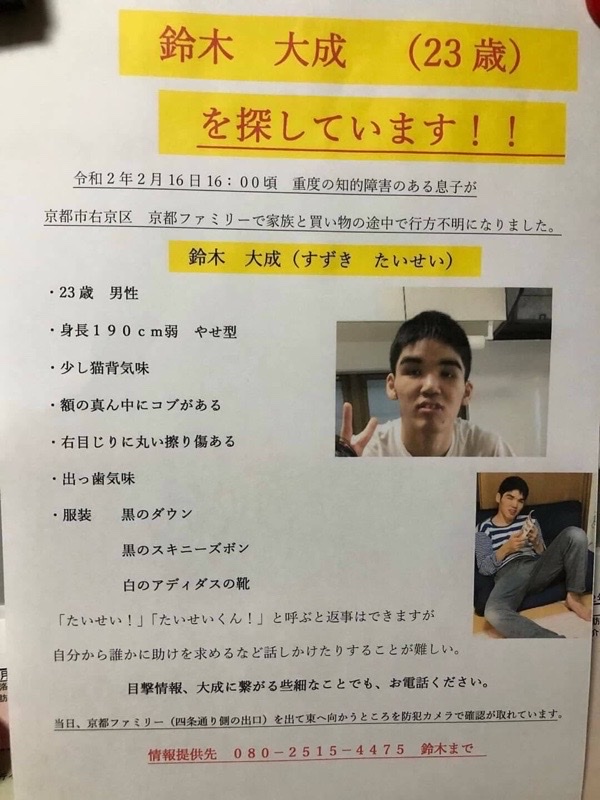 鈴木　大成　（23歳）
を探しています！！
令和２年２月16日16：00頃　重度の知的障害のある息子が
京都市右京区　京都ファミリーで家族と買い物の途中で行方不明になりました。
鈴木　大成（すずき　たいせい）
・23歳　男性
・身長１９０ｃｍ弱　やせ型
・少し猫背気味
・額の真ん中にコブがある
・右目じりに丸い擦り傷ある
・出っ歯気味
・服装　　黒のダウン
黒のスキニーズボン
白のアディダスの靴
「たいせい！」「たいせいくん！」と呼ぶと返事はできますが
自分から誰かに助けを求めるなど話しかけたりすることが難しい。
目撃情報、大成に繋がる些細なことでも、お電話ください。
当日、京都ファミリー（四条通り側の出口）を出て東へ向かうところを防犯カメラで確認が取れています。
情報提供先　０８０－２５１５－４４７５　鈴木まで